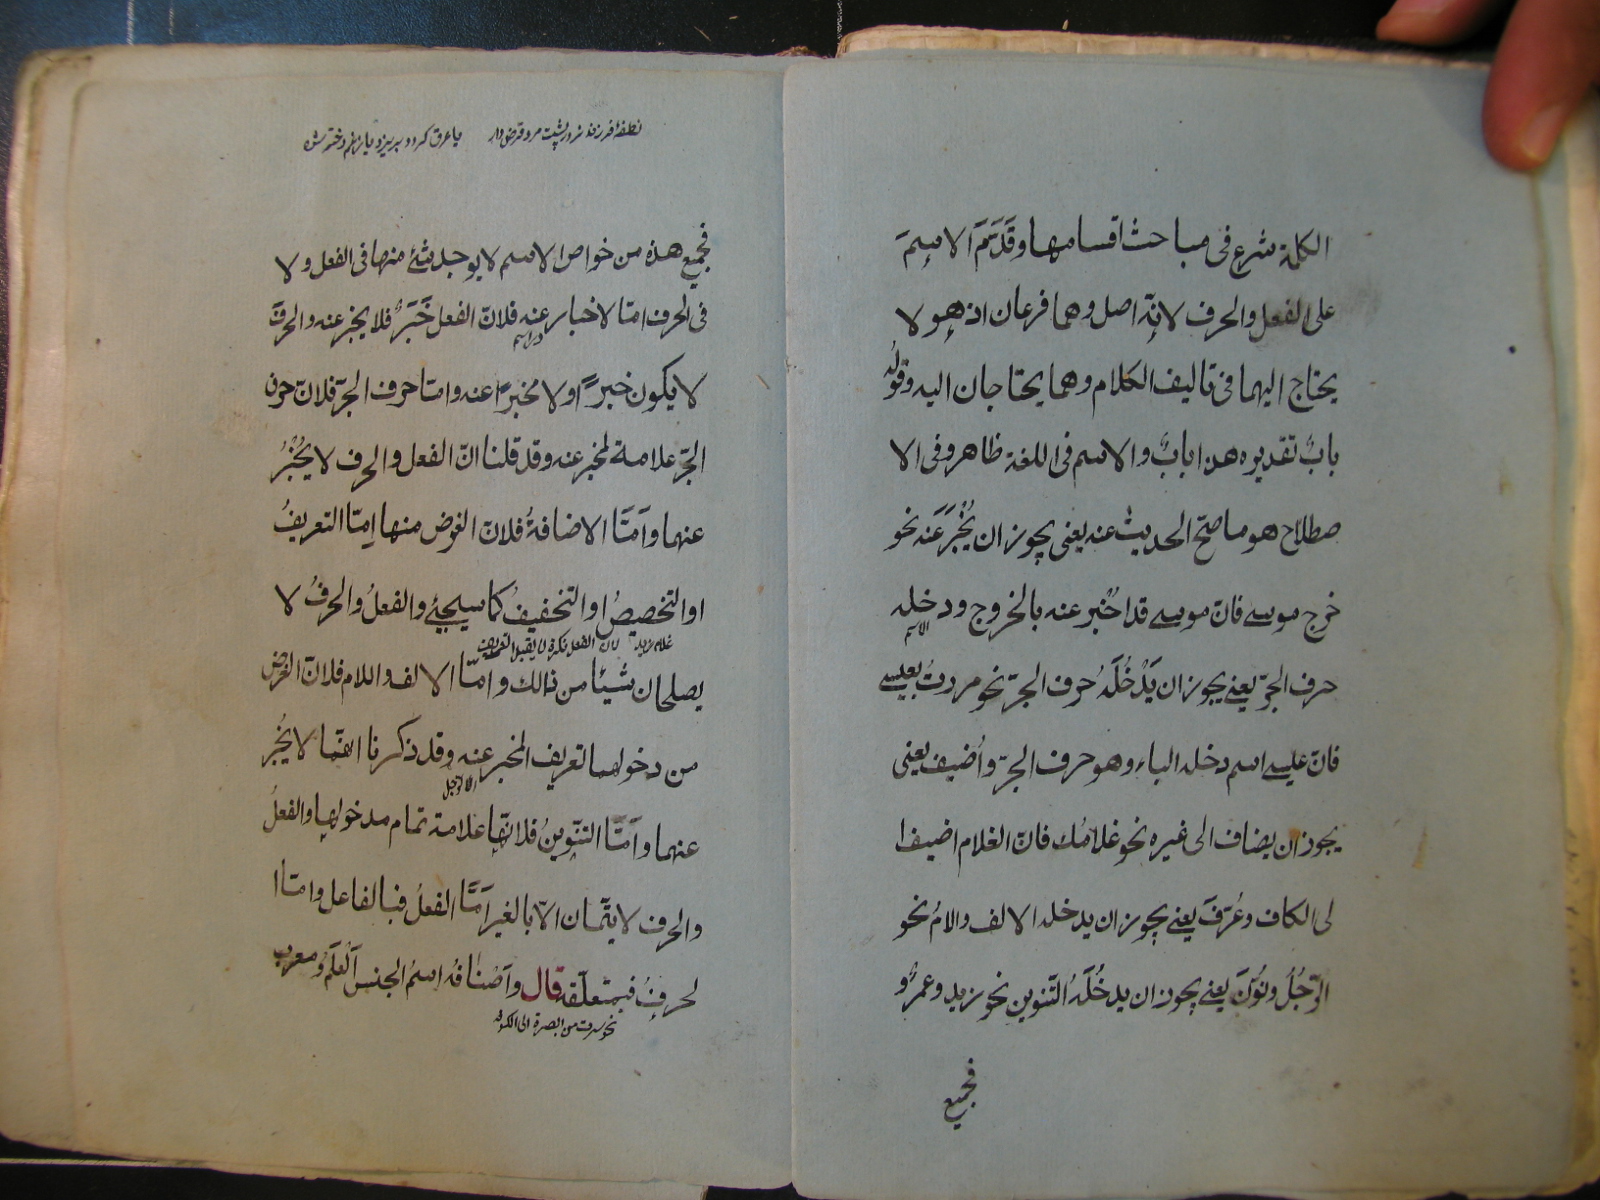 الكلمة شرع فى مباحث اقسامها وقَدَّمَ الاِسمَ
على الفعل والحرف لانّه اصل وهما فرعان اذ هو لا
يحتاج اليهما فى تاليف الكلام وهما يحتاجان اليه وقولُه
بابٌ تقديره هذا بابٌ والاسم فى اللغة ظاهر وفى الا
صطلاح هو ما صحّ الحديثُ عنه يعنى يجوز ان يُخْبَرَ عَنه نحو
خرج موسى فانّ موسى قد اُخبر عنه بالخروج ودخله
الاسم
حرف الجرّ يعنى يجوز ان يَدْخُلَهُ حرف الجرّ نحو مررتُ بعيسى
فانّ عيسى اسم دخله الباء وهو حرف الجرّ واُضيف يعنى
يجوز ان يضاف الى غيره نحو غلامُك فانّ الغلام اضيف ا
لى الكاف وعُرّفَ يعنى يجوز ان يدخله الالف والامُ نحو
الرّجُلُ ونُوّنَ يعنى يجوز ان يدخُلَهُ التّنوين نحو زيد وعمرٌو
فجميع
نطفهٔ فرزند در پشت مرد قرض دار
فجميع هذه من خواص الاسم لا يوجد شئ منها فى الفعل ولا
فى الحرف امّا الاخبار عنه فلانّ الفعل خَبَرٌ فلا يخبر عنه والحرفَ
لا يكون خبرًا ولا مخبرًا عنه وامّا حرف الجرّ فلانّ حرف
الجرّ علامة لمخبر عنه وقد قلنا انّ الفعل والحرف لا يُخْبَرُ
عنهما وَاَمَّا الاضافةُ فلانّ الغرض منها اِمّا التعريفُ
او التخصيصُ او التخفيفُ كما سيجئ والفعلُ والحرفُ لا
غلام زيد لان الفعل نكرة لا يقبل التعريف
يصلحان شيئا من ذالك وامّا الالف واللام فلانّ الغرض
من دخولهما تعريف المخبر عنه وقد ذكرنا انهما لا يُخبَر
عنهما واَمّا التنّوينُ فلانّها علامة تمام مدخولها والفعلُ
والحرف لا يتمّان الّا بالغير اَمَّا الفعلُ فبالفاعل وامّا ا
لحرفُ فبمتعلّقه قال وَاَصْنافُه اسمُ الجنس اَلعَلَمُ ومعرب
نحو سرت من البصرة الى الكوفه